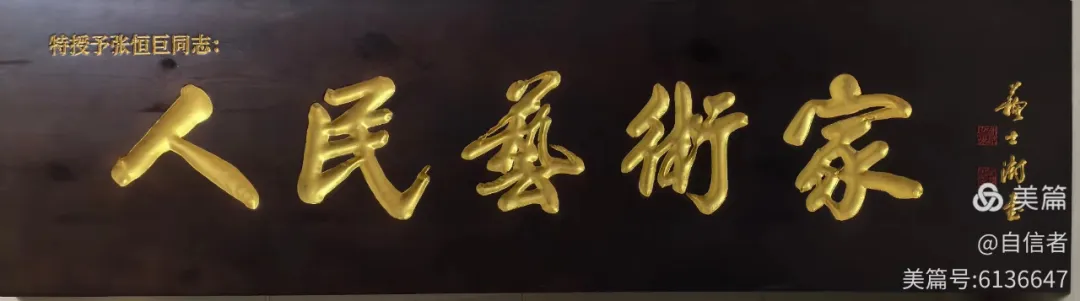 特授予张恒巨同志：
人民藝術家
美篇
@自信者
美篇号:6136647